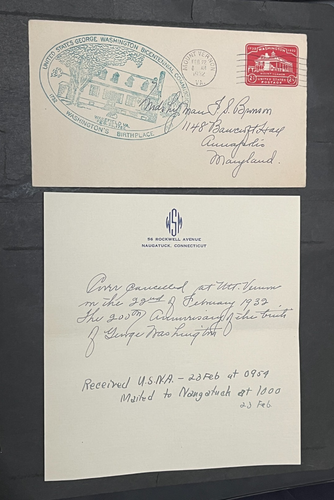 UNITED STATES GEORGE WASHINGTON BICENTENNIAL COMMISSION
WASHINGTON'S BIRTHPLACE
MOUNT VERNON
FEB 22
1932
VA.
UNITED STATES
POSTAGE
Midshipman
1148 Bancroft Hall
Annapolis
Maryland.
WSM
56 ROCKWELL AVENUE
NAUGATUCK, CONNECTICUT
Cover canceled at Mt. Vernon
on the 22nd of February 1932
the 200th Anniversary of the birth
of George Washington
Received U.S.N.A. - 23 Feb at 0954
Mailed to Naugatuck at 1000
23 Feb